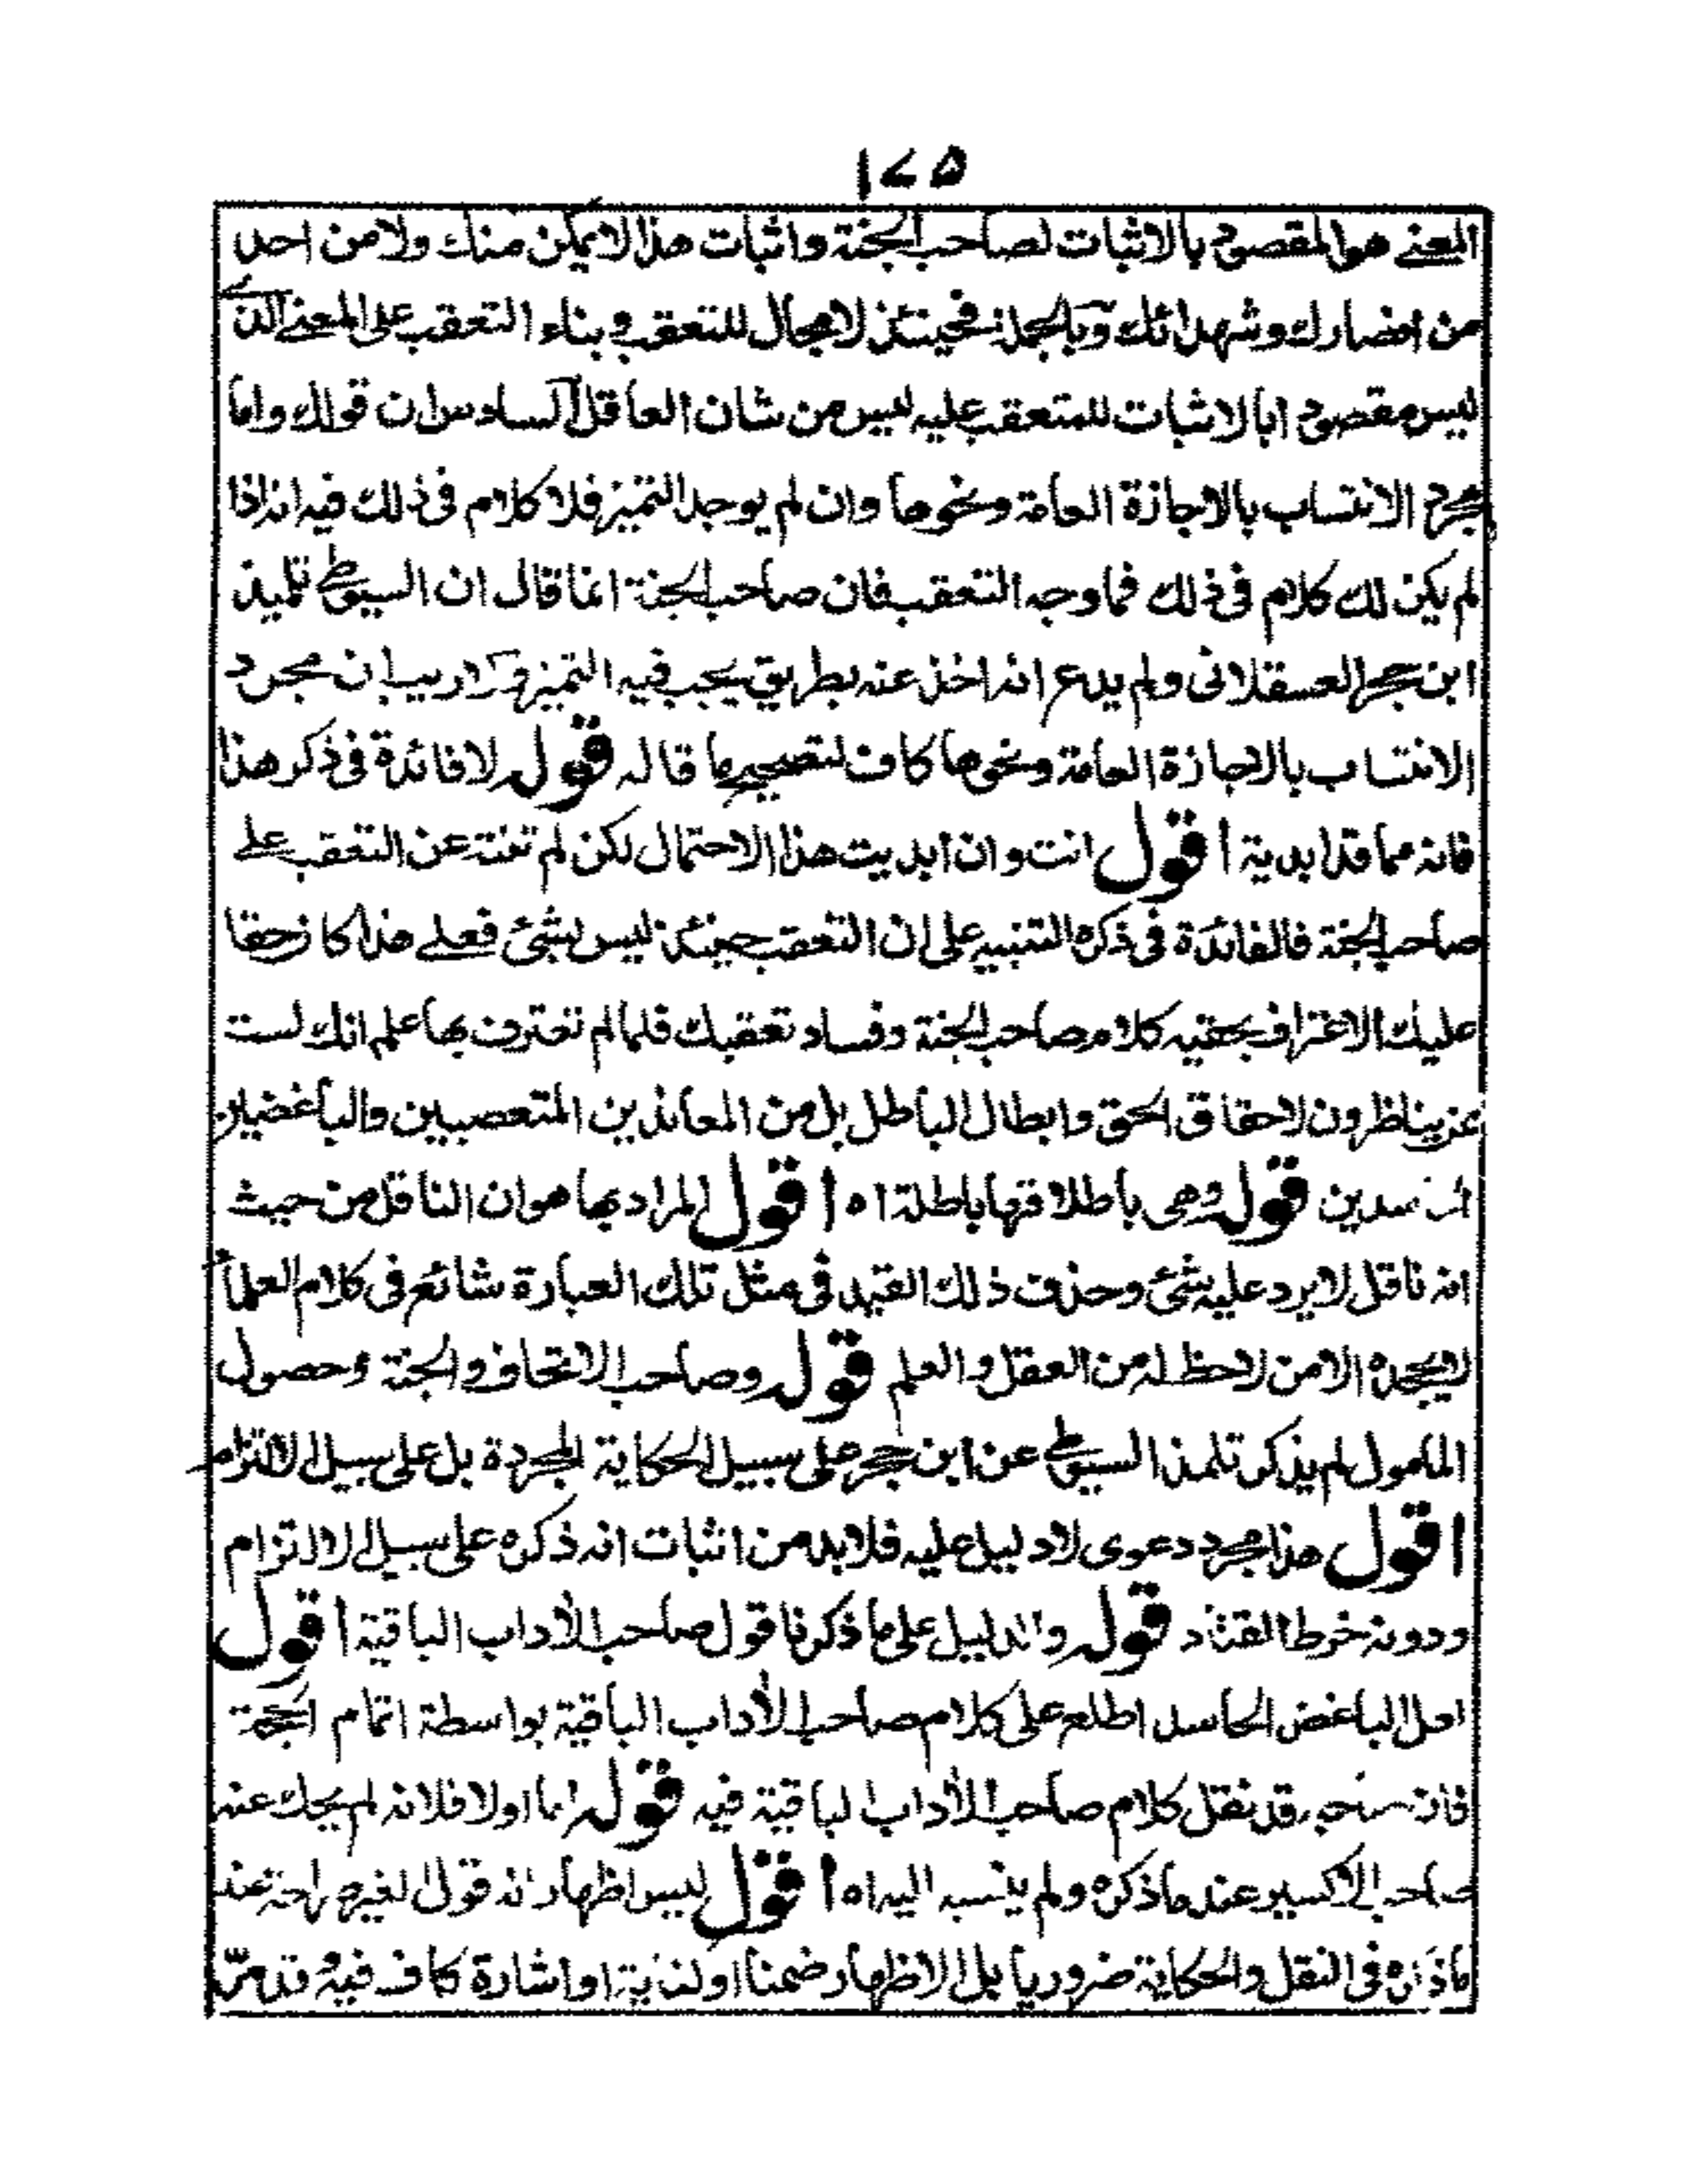 ١٧٥
المعنے هو المقصود بالاثبات لصاحب الجنة واثبات هذا لا يمكن منك ولا من احد
من انصارك وشهدائك وبالجملة فحينئذ لا مجال للتعقب وبناء التعقب على المعنے الذى
ليس مقصودا بالاثبات للمتعقب عليه ليس من شان العاقل السادس ان قولك واما
مجرد الانتساب بالاجازة العامة ونحوها وان لم يوجد التميز فلا كلام فى ذلك فيه انه اذا
لم يكن لك كلام فى ذلك فما وجه التعقب فان صاحب الجنة انما قال ان السيوطے تلميذ
ابن حجر العسقلانى ولم يدع انه اخذ عنه بطريق يجب فيه التميز ولا ريب ان مجرد
الانتساب بالاجازة العامة ونحوها كاف لتصحيح ما قاله قوله لا فائدة فى ذكر هذا
فانه مما قد ابديته اقول انت وان ابديت هذا الاحتمال لكن لم تنته عن التعقب علے
صاحب الجنة فالفائدة فى ذكره التنبيه على ان التعقب حينئذ ليس بشئ فعلے هذا كان حقا
عليك الاعتراف بحقيه كلام صاحب الجنة وفساد تعقبك فلما لم تعترف بها علم انك لست
ممن يناظرون لاحقاق الحق وابطال الباطل بل من المعاندين المتعصبين والباغضين
الحاسدين قوله وهى باطلاقها باطلة اه اقول المراد بها هو ان الناقل من حيث
انه ناقل لا يرد عليه شئ وحذف ذلك القيد فى مثل تلك العبارة شائع فى كلام العلماء
لا يجحده الا من لا حظ له من العقل والعلم قوله وصاحب الاتحاف والجنة وحصول
المامول لم يذكر تلمذ السيوطے عن ابن حجر على سبيل الحكاية المجردة بل على سبيل الالتزام
اقول هذا مجرد دعوى لا دليل عليه فلا بد من اثبات انه ذكره على سبيل الالتزام
ودونه خرط القتاد قوله والدليل على ما ذكرنا قول صاحب الأداب الباقية اقول
لعل الباغض الحاسد اطلع على كلام صاحب الأداب الباقية بواسطة اتمام الحجة
فان صاحبه قد نقل كلام صاحب الأداب الباقية فيه قوله اما اولا فلانه لم يحك عنه
صاحب الاكسير عند ما ذكره ولم ينسبه اليه اه اقول ليس اظهار انه قول لغير صراحة عند
ما ذكره فى النقل والحكاية ضروريا بل الاظهار ضمنا او كناية او اشارة كاف فيه وقد مر